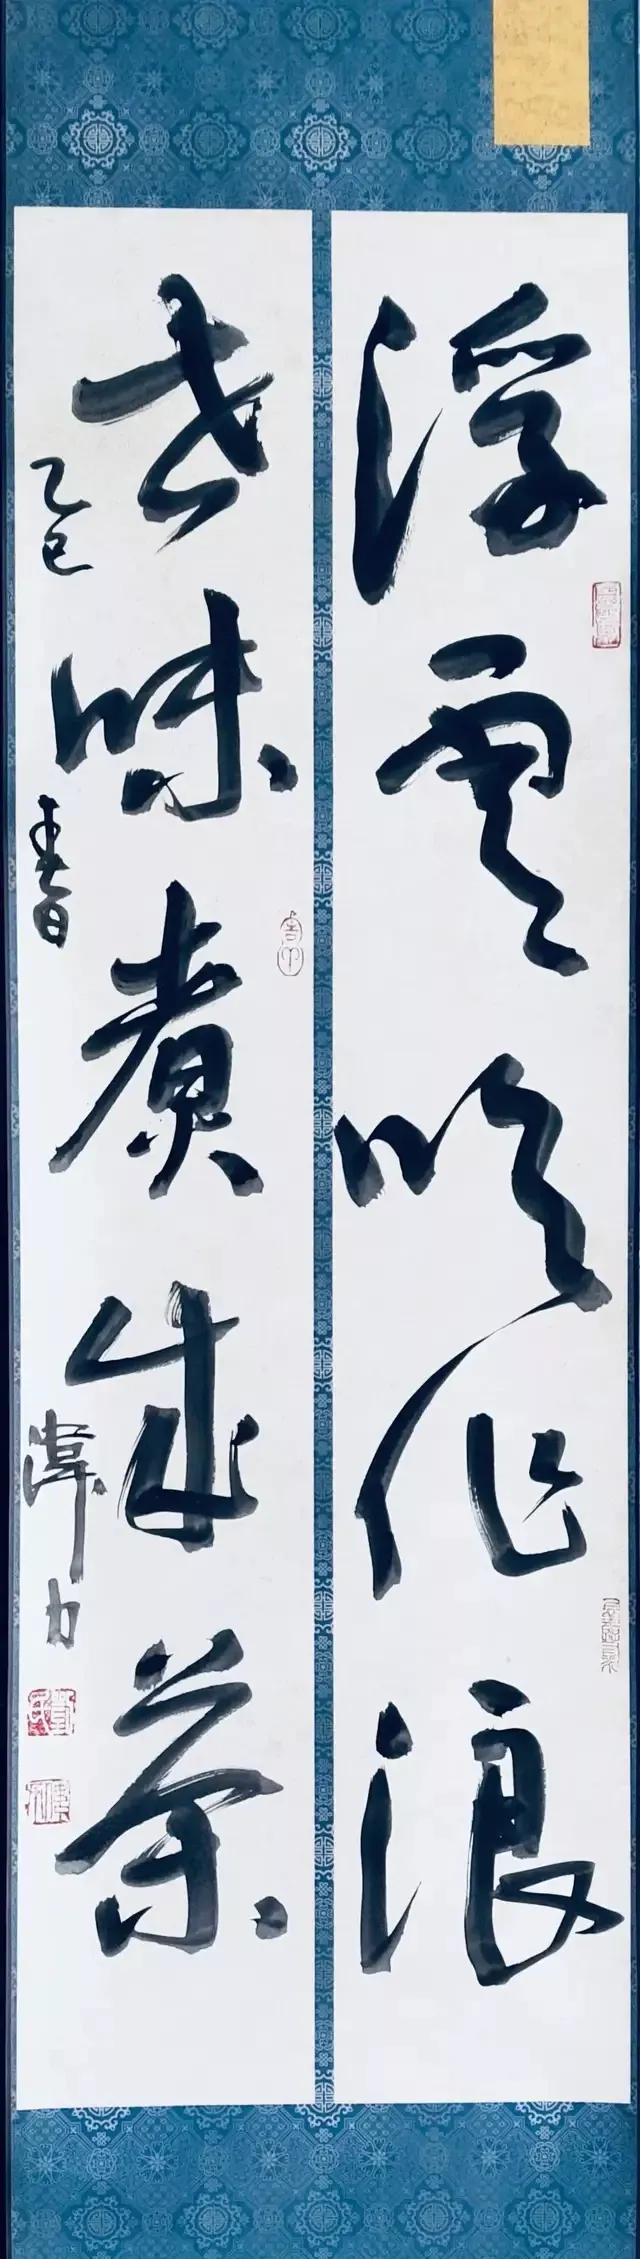 浮云吹作浪
世味煮成茶
乙巳春日
伟力